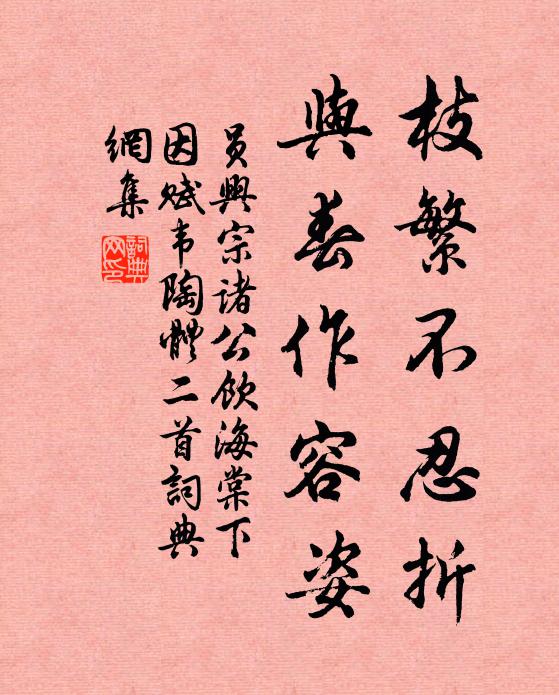 枝繁不忍折
與春作容姿
員興宗諸公飲海棠下
因賦韋陶體二首詞典
網集
詞典網印